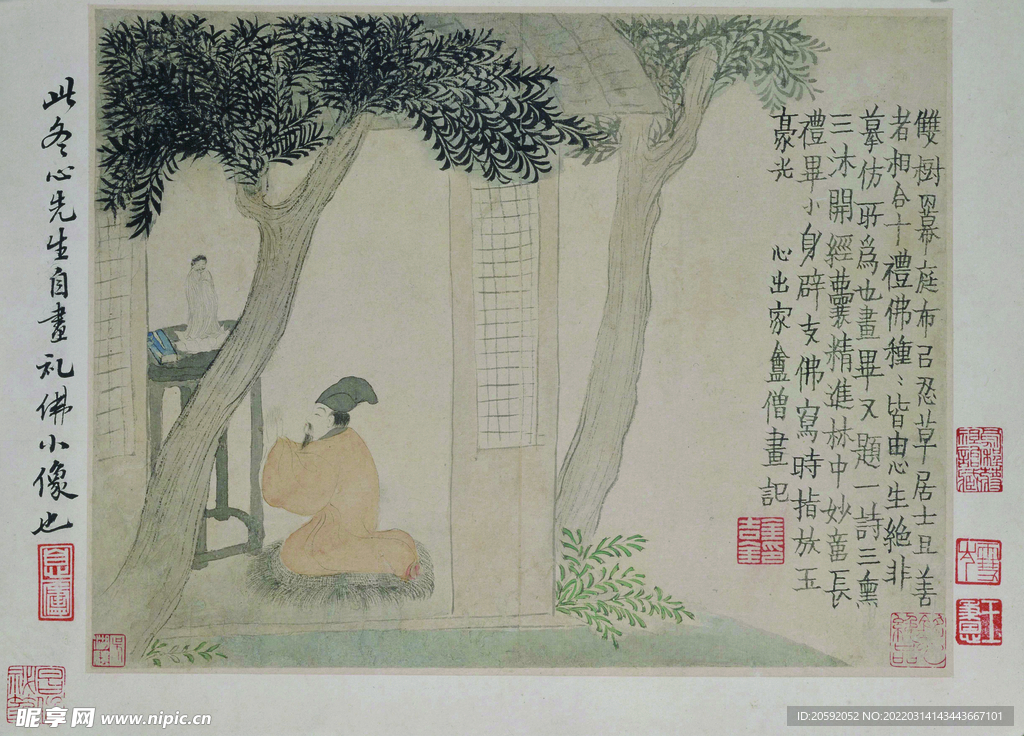 雙樹冪庭布忍草居士且善
者相合十禮佛種〻皆由心生絶非
摹仿所爲也畫畢又題一詩三熏
三沐開經囊精進林中妙童長
禮畢小身辟支佛寫時指放玉
豪光 心出家盦僧畫記
此冬心先生自畫礼佛小像也
昵享网 www.nipic.cn
ID:20592052 NO:20220314143443667101